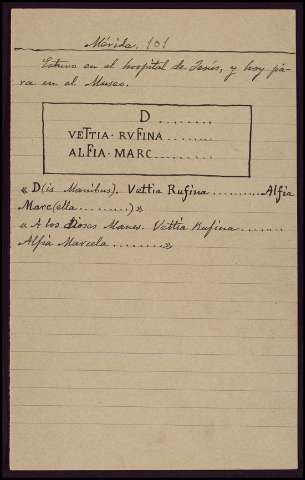 Mérida. 101
Estuvo en el hospital de Jesús, y hoy pa-
ra en el Museo.
D ........
VETTIA · RVFINA ........
ALFIA · MARC ..........
« D(is Manibus). Vettia Rufina .......... Alfia
Marc(ella .........) »
« A los Dioses Manes. Vettia Rufina .......
Alfia Marcela ......... »